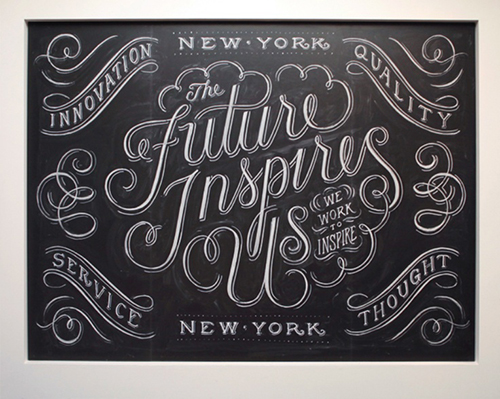 NEW·YORK
INNOVATION
QUALITY
The
Future
Inspires
Us
WE
WORK
TO
INSPIRE
SERVICE
THOUGHT
NEW·YORK